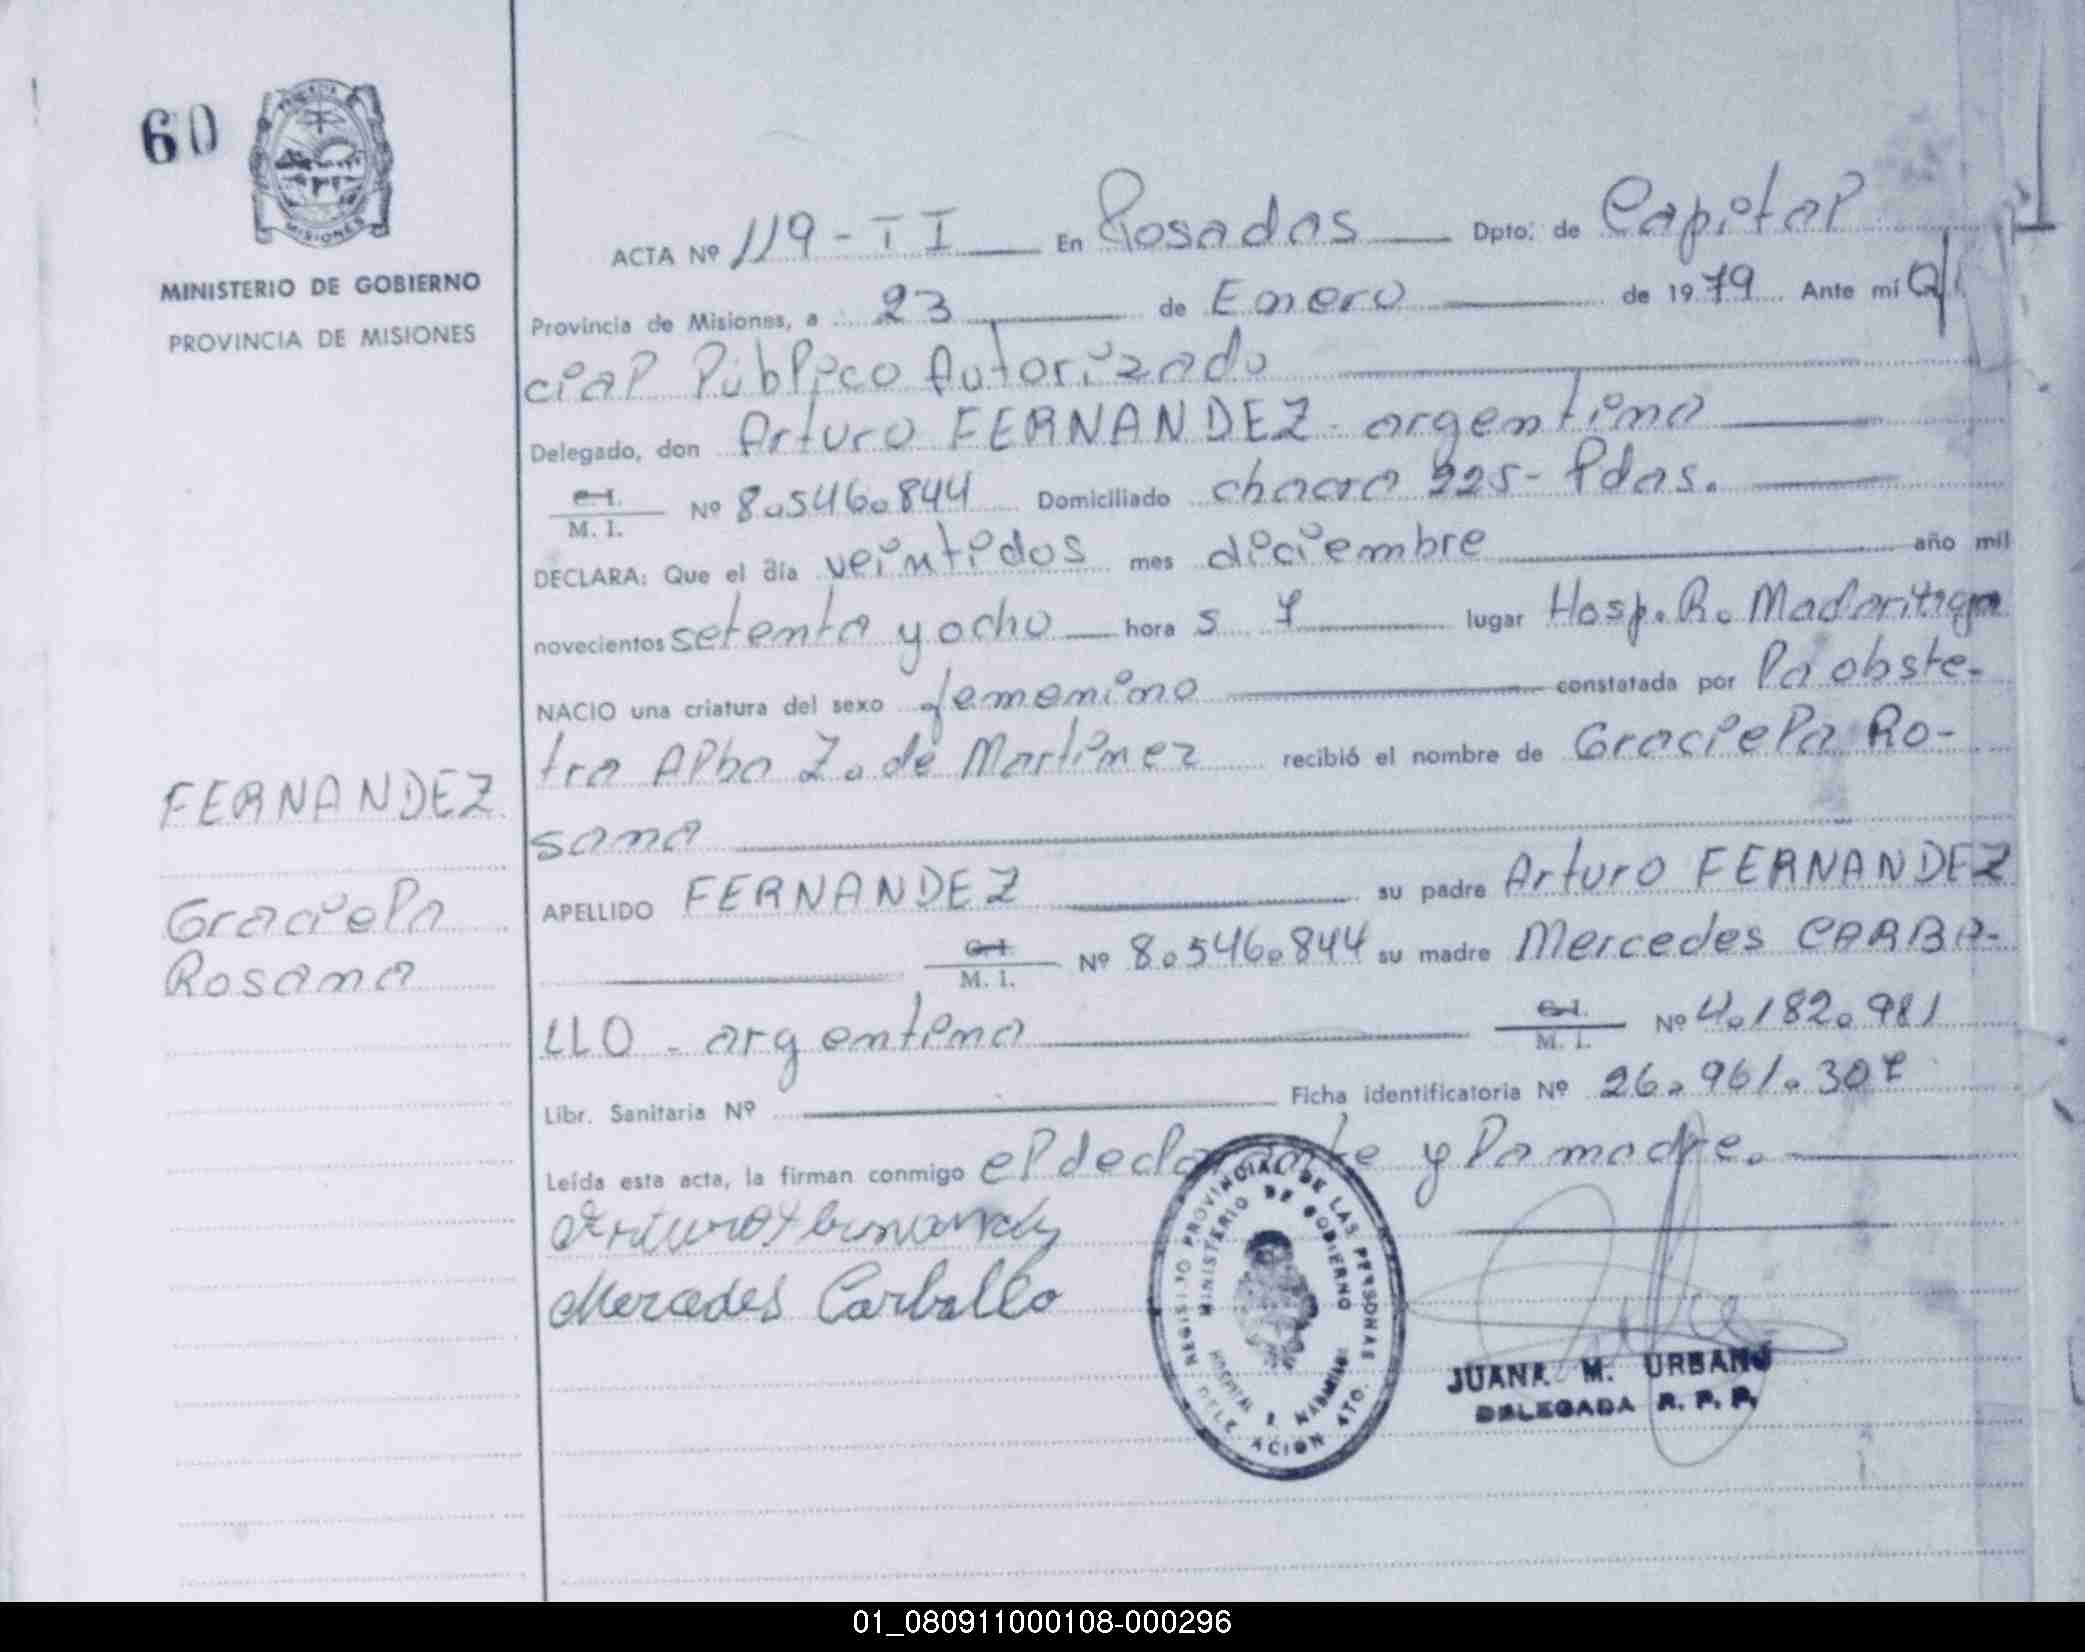 60
MISIONES
MINISTERIO DE GOBIERNO
PROVINCIA DE MISIONES
ACTA Nº 119-II En Posadas Dpto: de Capital
Provincia de Misiones, a 23 de Enero de 1979 Ante mí Ofi
cial Público Autorizado
Delegado, don Arturo FERNANDEZ - argentino
C.I.
M. I. Nº 8.546.844 Domiciliado chacra 225- Pdas.
DECLARA: Que el día veintidos mes diciembre año mil
novecientos setenta y ocho hora s 7 lugar Hosp. R. Madariaga
NACIO una criatura del sexo femenino constatada por la obste-
tra Alba Z. de Martinez recibió el nombre de Graciela Ro-
sana
APELLIDO FERNANDEZ su padre Arturo FERNANDEZ
C.I.
M. I. Nº 8.546.844 su madre Mercedes CARBA-
LLO - argentina C.I.
M. I. Nº 4.182.981
Libr. Sanitaria Nº Ficha identificatoria Nº 26.961.307
Leída esta acta, la firman conmigo el declarante y la madre.
Arturo Fernandez
Mercedes Carballo
FERNANDEZ
Graciela
Rosana
REGISTRO PROVINCIAL DE LAS PERSONAS
MINISTERIO DE GOBIERNO
HOSPITAL R. MADARIAGA
DELEGACION 4TO.
JUANA M. URBANO
DELEGADA R. P. P.
01_080911000108-000296